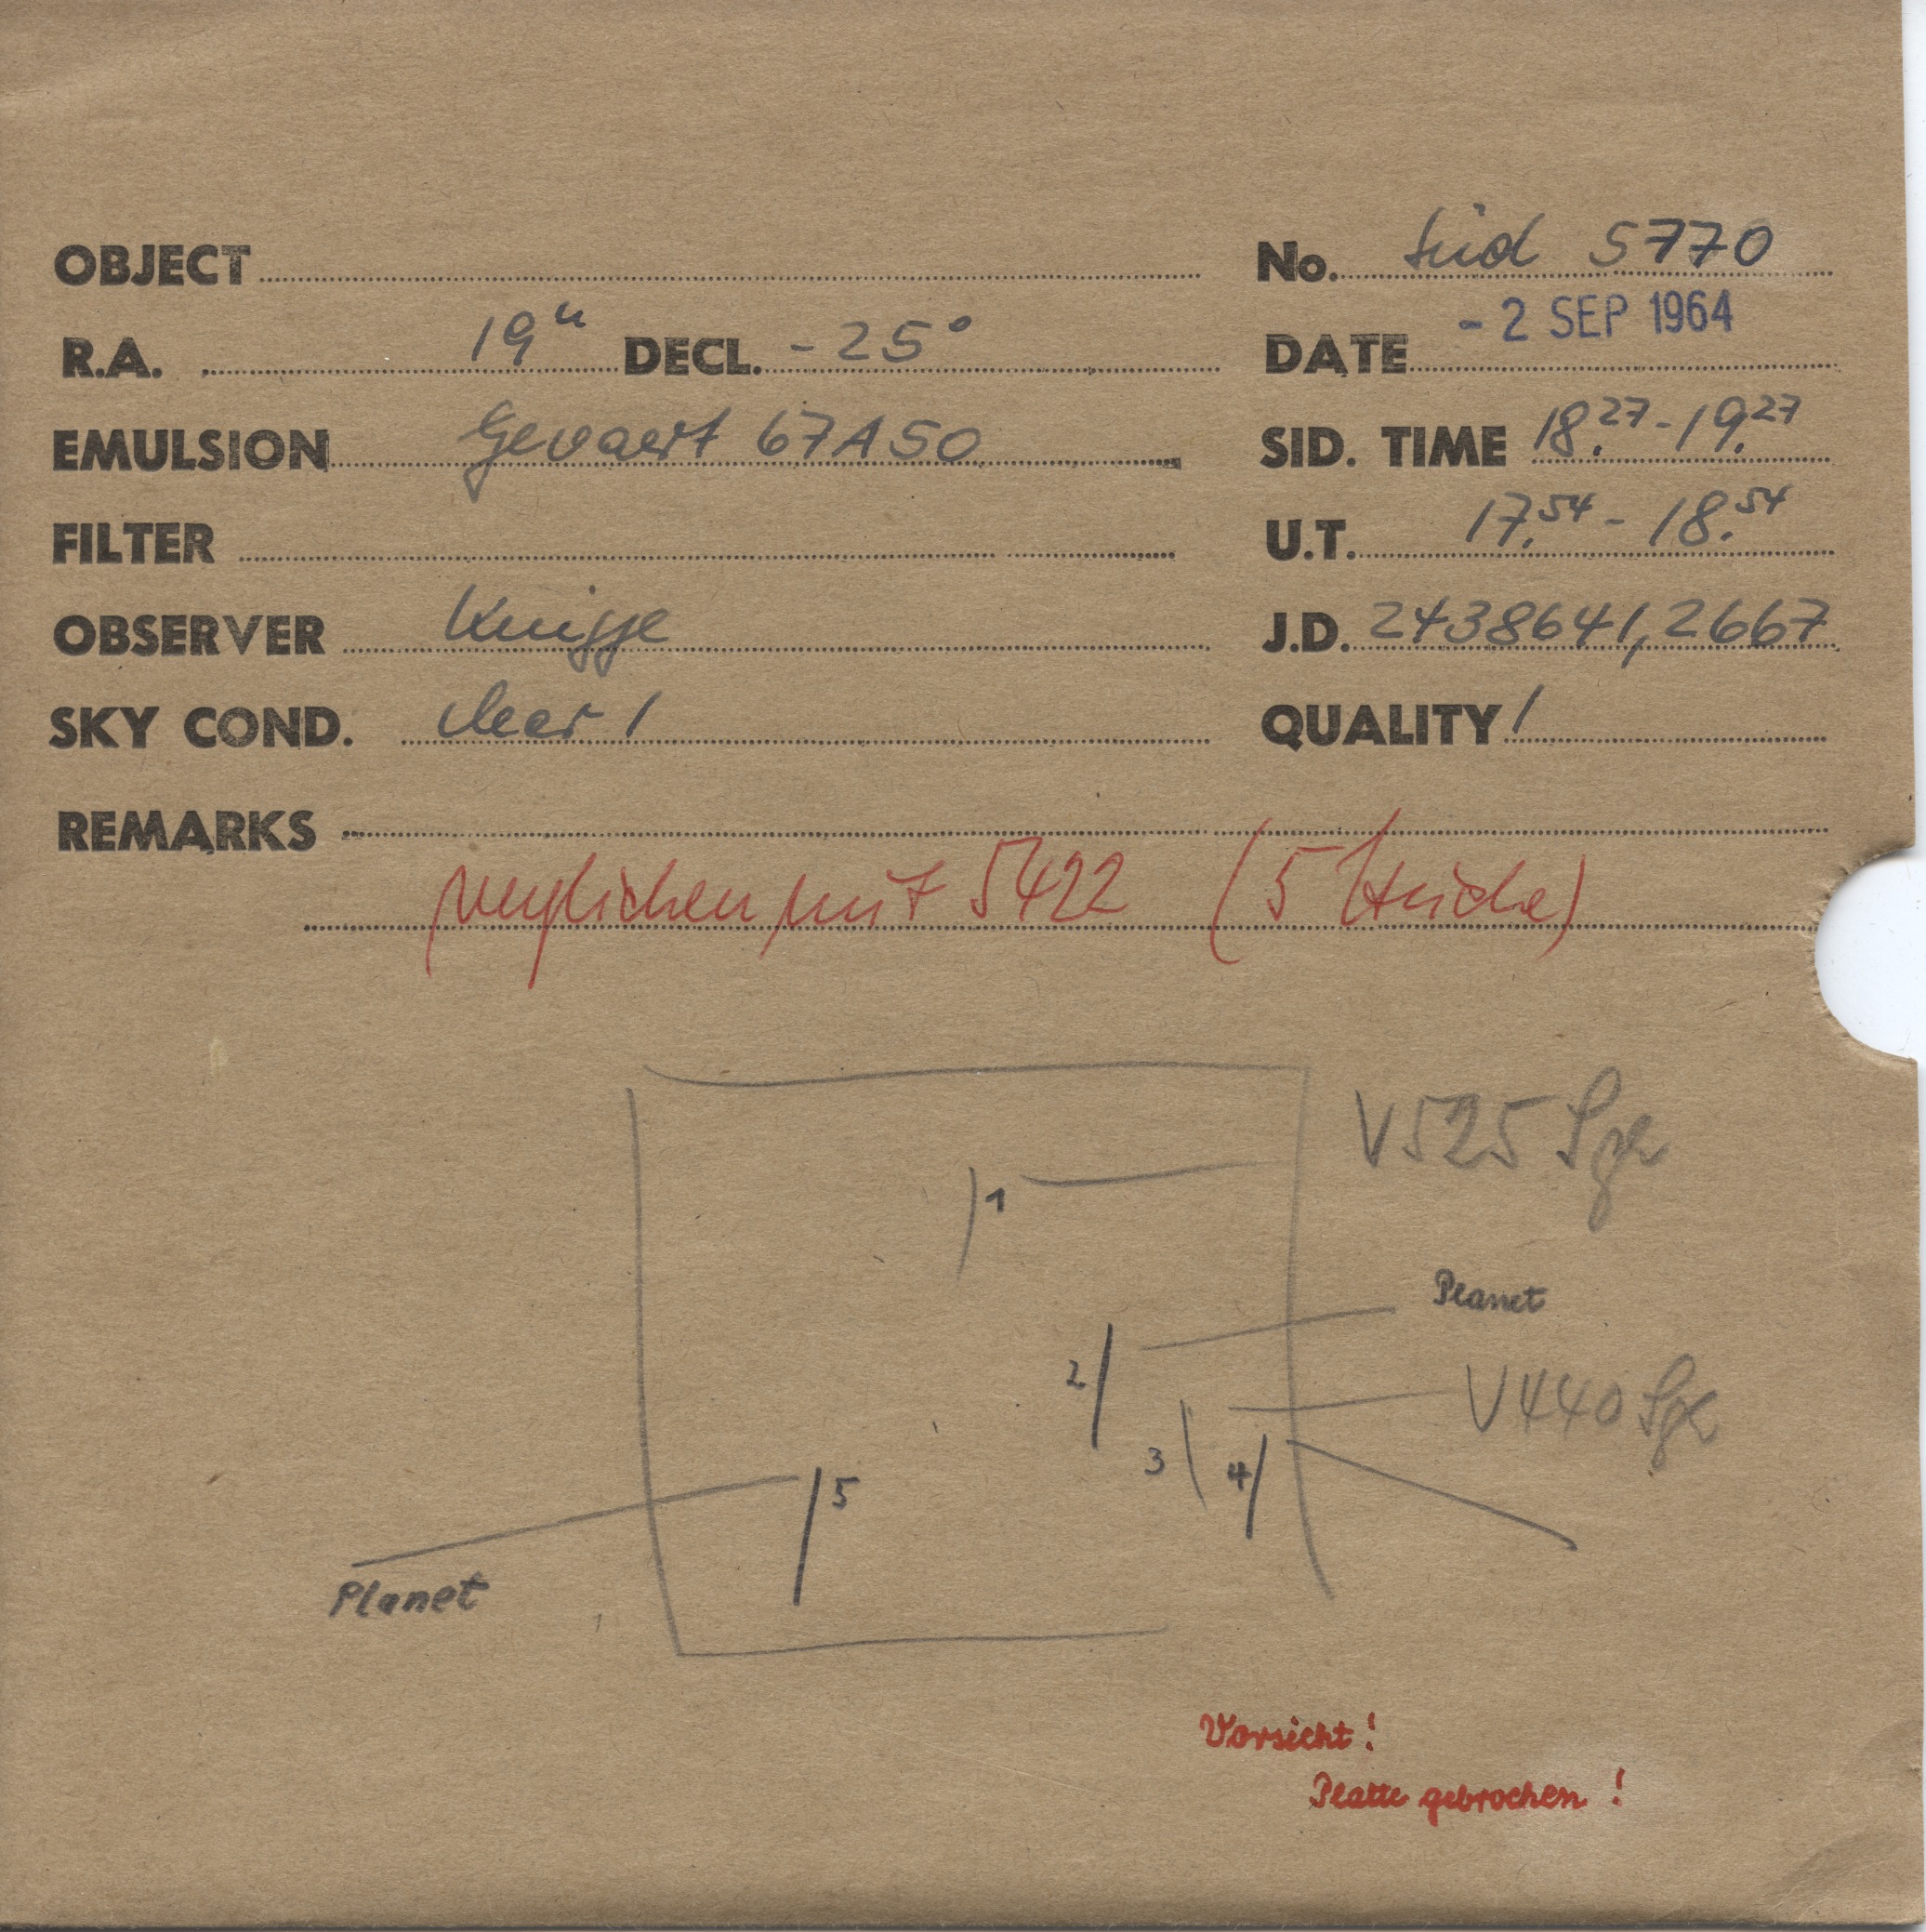 OBJECT No. Süd 5770
R.A. 19ʰ DECL. -25° DATE - 2 SEP 1964
EMULSION Gevaert 67A50 SID. TIME 18.27 - 19.27
FILTER U.T. 17.54 - 18.54
OBSERVER Knigge J.D. 2438641,2667
SKY COND. clear 1 QUALITY 1
REMARKS
verglichen mit 5422 (5 Striche)
V525 Sgr
1
Planet
2
V440 Sgr
3 4
5
Planet
Vorsicht!
Platte gebrochen!